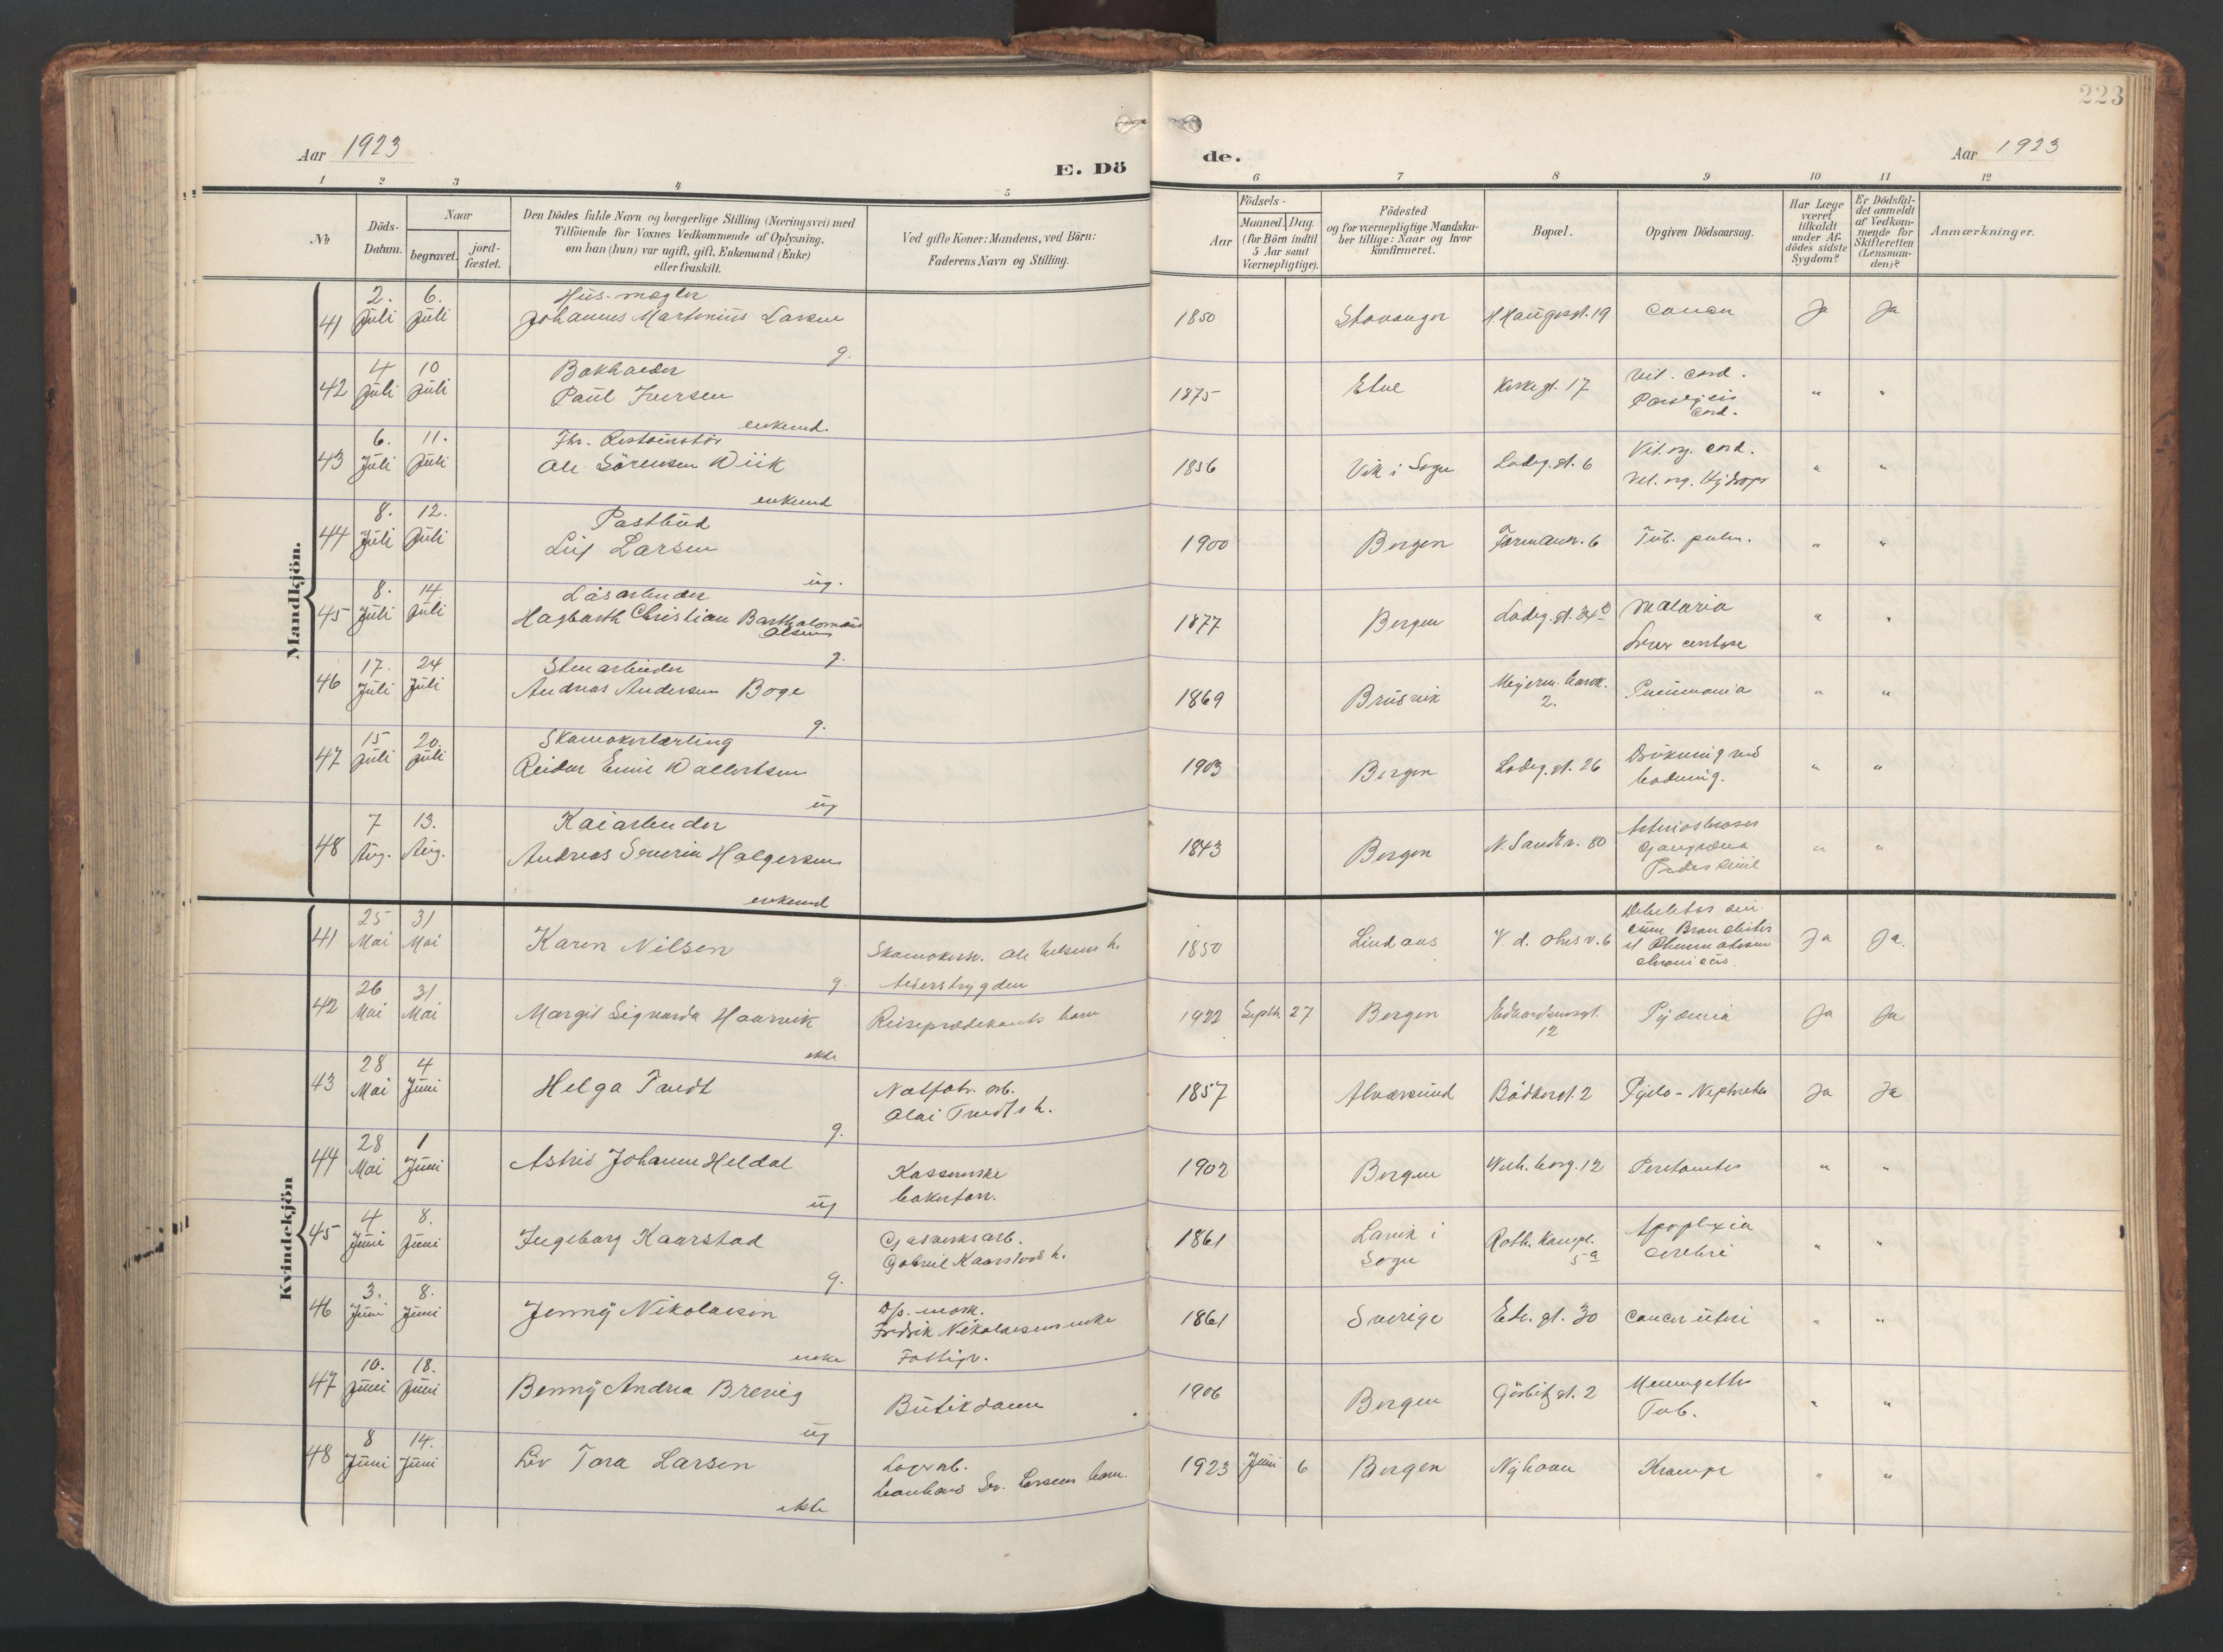 223
Aar 1923
E. Dö
de.
Aar 1923
1 2 3 4 5 6 7 8 9 10 11 12
No
Döds-
Datum.
Naar
begravet.
jord-
fæstet.
Den Dödes fulde Navn og borgerlige Stilling (Næringsvei) med
Tilföiende for Voxnes Vedkommende af Oplysning,
om han (hun) var ugift, gift, Enkemand (Enke)
eller fraskilt.
Ved gifte Koner: Mandens, ved Börn:
Faderens Navn og Stilling.
Födsels-
Aar
Maaned. Dag.
(for Börn indtil
5 Aar samt
Værnepligtige).
Födested
og for værnepligtige Mandska-
ber tillige: Naar og hvor
konfirmeret.
Bopæl.
Opgiven Dödsaarsag.
Har Læge
været
tilkaldt
under Af-
dödes sidste
Sygdom?
Er Dödsfal-
det anmeldt
af Vedkom-
mende for
Skifteretten
(Lensman-
den)?
Anmærkninger.
Mandkjön.
41 2. Juli 6. Juli
Hus-mægler
Johannes Martinius Larsen
g.
1850 Stavanger H. Haugesgt. 19 Cancer Ja Ja
42 4 Juli 10 Juli
Bokholder
Paul Iversen
enkemd.
1875 Etne Kirkegt. 17
Vit. cord.
Paralysis
cord.
" "
43 6. Juli 11. Juli
Ole Sörensen Wiik
enkemd
1856 Vik i Sogn Ladeg. gt. 6
Vit. org. cord.
Vit. org. Hydrops
" "
44 8. Juli 12. Juli
Postbud
Leif Larsen
ug.
1900 Bergen Formann. 6 Tub. pulm. " "
45 8. Juli 14 Juli
Läsarbeider
Hagbarth Christian Bartholomäus
Olsen
g.
1877 Bergen Ladeg. gt. 34b
Malaria
" "
46 17. Juli 24 Juli
Stenarbeider
Andreas Andersen Boge
g.
1869 Brusvik
2.
Pneumonia " "
47 15 Juli 20. Juli
Skomakerlærling
Reidar Emil Wallertsen
ug
1903 Bergen Ladeg. gt. 26
Drukning ved
badning.
" "
48 7 Aug. 13. Aug.
Kaiarbeider
Andreas Severin Holgersen
enkemd
1843 Bergen N. Sandv. 80
Arteriosclerosis
Gangræna
" "
Kvindekjön
41 25 Mai 31 Mai
Karen Nilsen
g
Skomakersv. Ole Nilsens h.
1850 Lindaas V. d. Ohes v. 6
Debilitas sen.
cum Bronchitis
et Rheumatism
chronicus.
Ja Ja.
42 26 Mai 31 Mai
Margit Sigvarda Haarvik
ekte
Reiseprædikants barn
1922 Septbr. 27 Bergen
Edvardsensgt.
12
Pyæmia Ja Ja
43 28 Mai 4 Juni
Helga Tvedt
g.
Notfabr. arb.
Olai Tvedts h.
1857 Alversund Bödkergt. 2 Pyelo-Nephritis Ja Ja
44 28 Mai 1 Juni
Astrid Johanne Heldal
ug
1902 Bergen Wesenb. g. 12 Peritonitis " "
45 4 Juni 8. Juni
Ingeborg Kaarstad
g.
Gasverksarb.
Gabriel Kaarstads h.
1861
Lavik i
Sogn
5a
Apoplexia
cerebri
" "
46 3. Juni 8. Juni
Jenny Nikolaisen
enke
D/s. mask.
Fredrik Nikolaisens enke
Fattigv.
1861 Sverige Edv. gt. 30 Cancer uteri " "
47 10. Juni 18. Juni
Benny Andrea Brevig
ug
Butikdame
1906 Bergen Görbitz gt. 2
Meningitis
Tub.
" "
48 8 Juni 14. Juni
Liv Tora Larsen
ekte
Lagerarb.
1923 Juni 6 Bergen Nyhavn Krampe " "